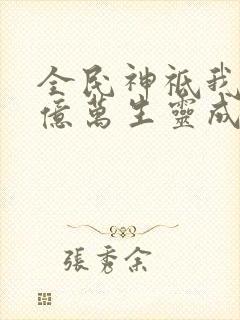 全民神祇我
億萬生靈成
張秀余